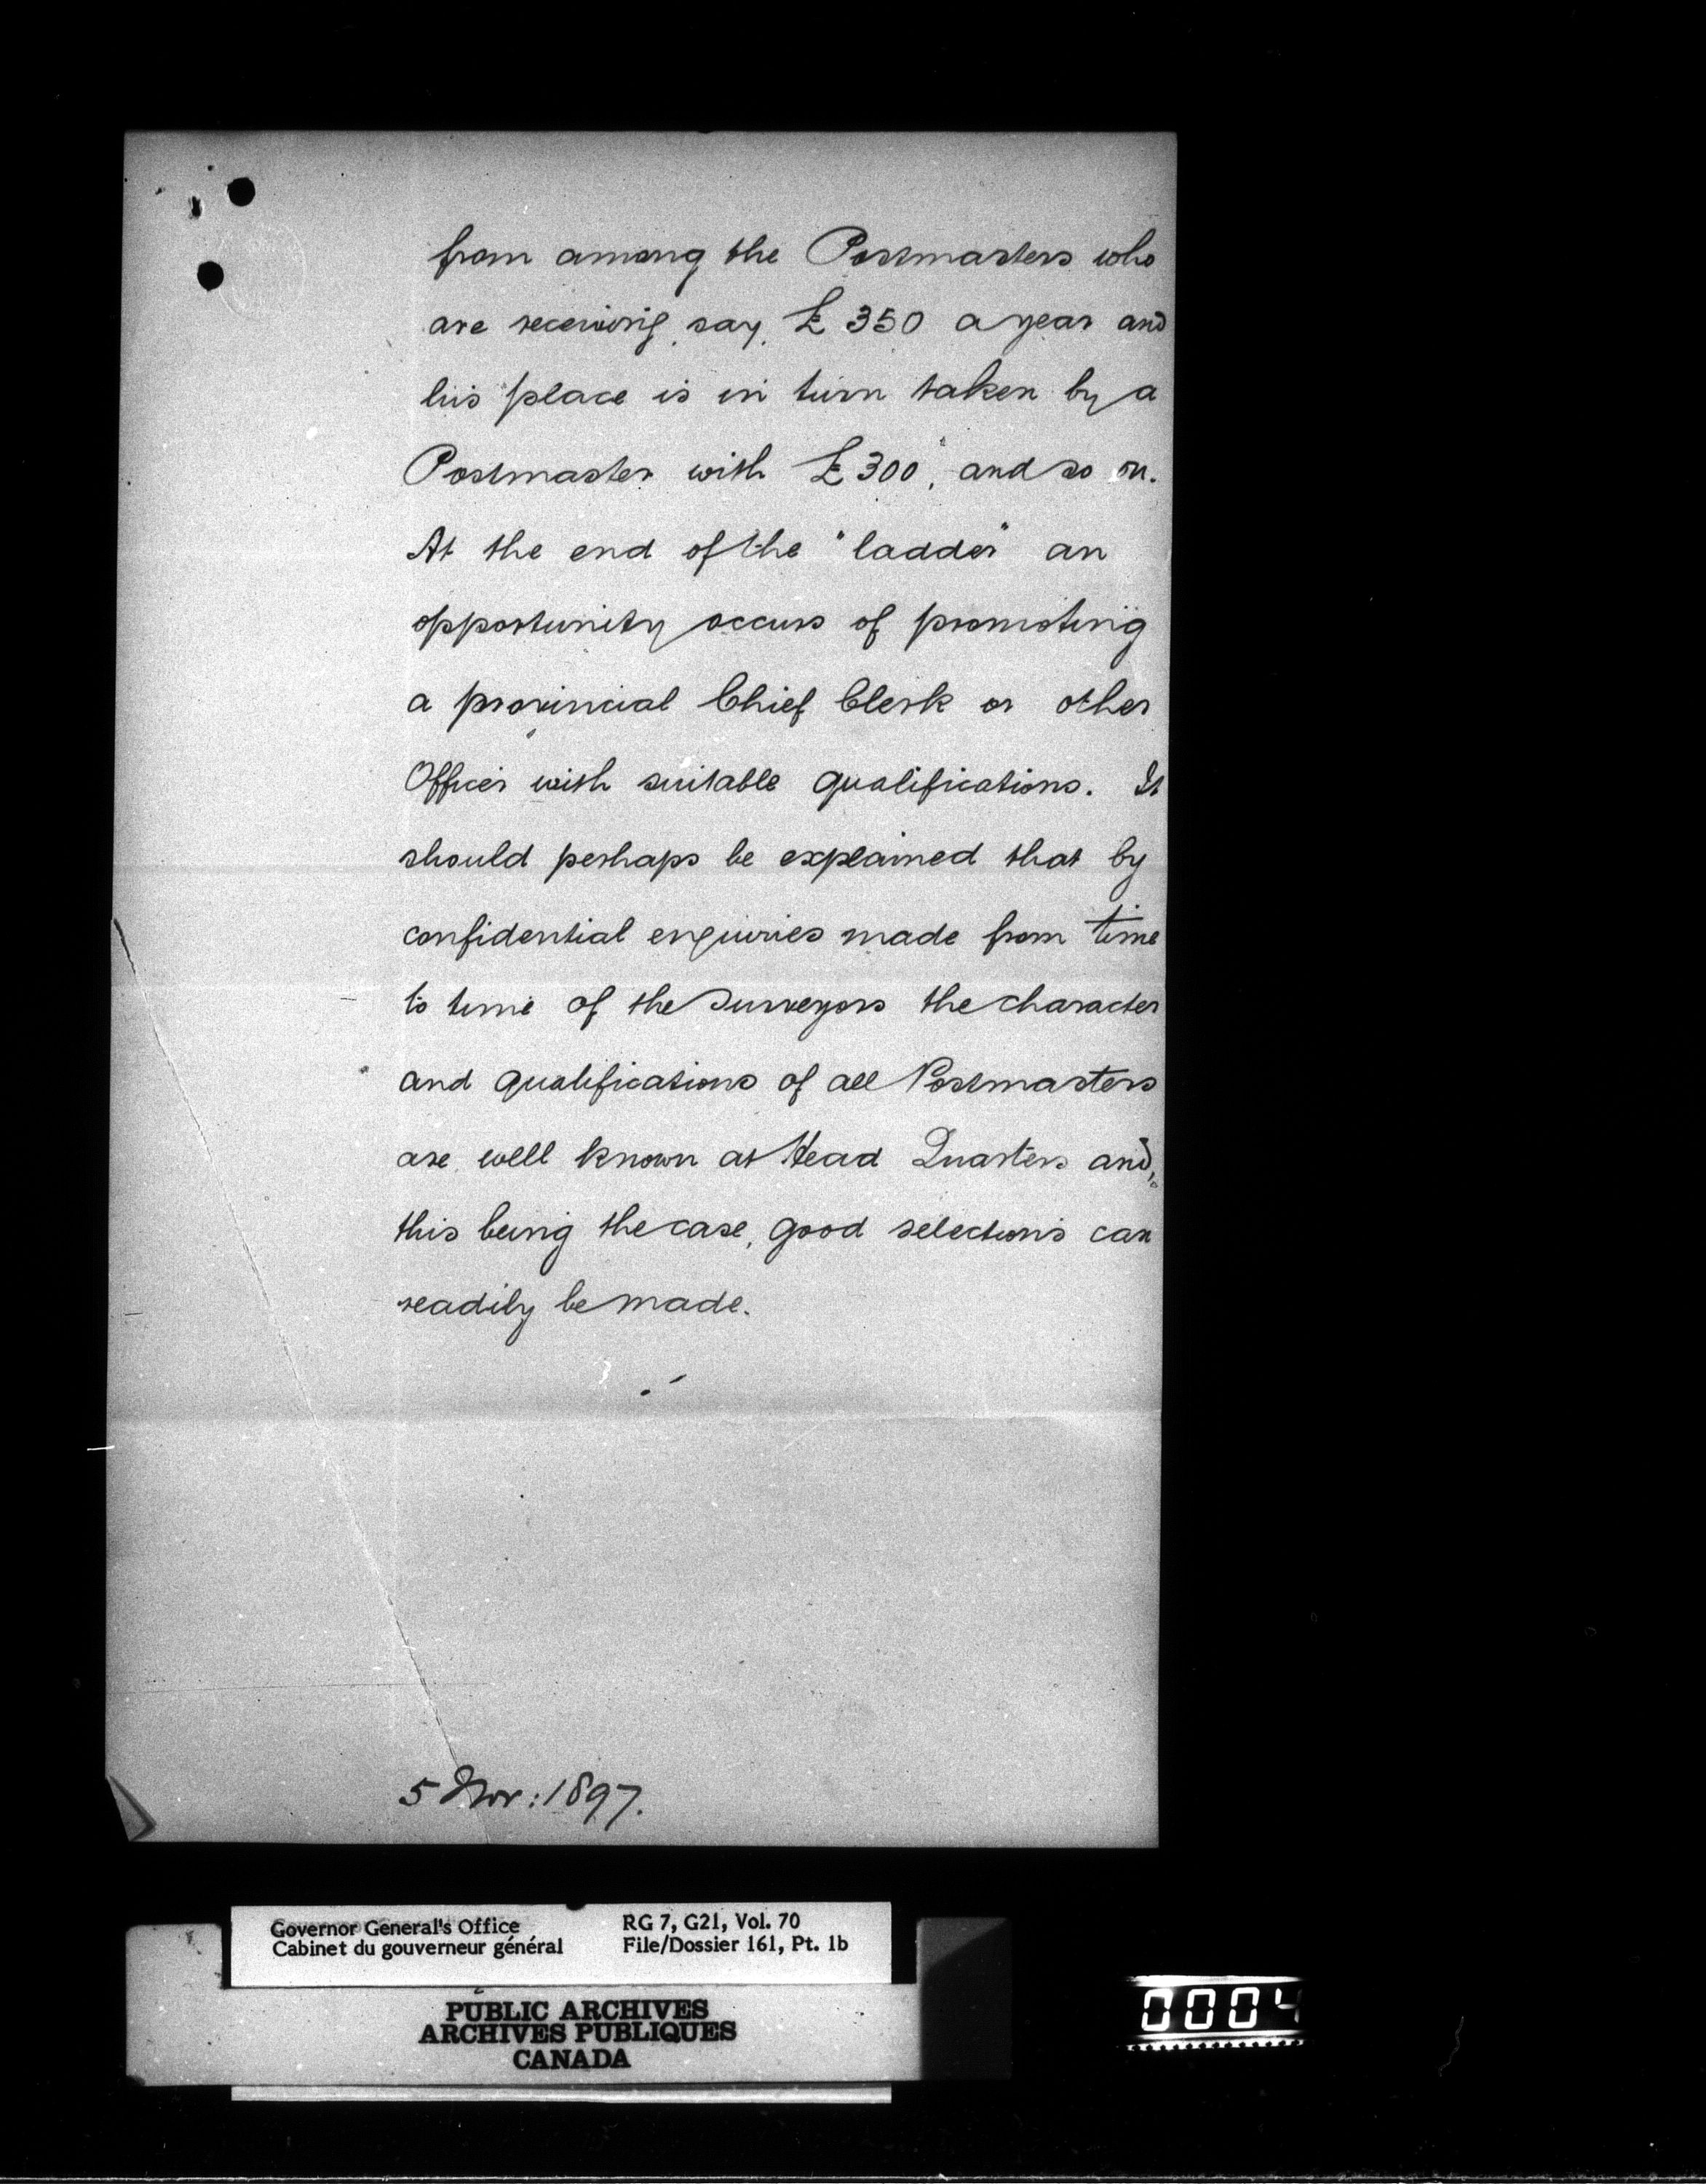 from among the Postmasters who
are receiving, say, £350 a year and
his place is in turn taken by a
Postmaster with £300, and so on.
At the end of the "ladder" an
opportunity occurs of promoting
a provincial Chief Clerk or other
Officer with suitable qualifications. It
should perhaps be explained that by
confidential enquiries made from time
to time of the Surveyors the character
and qualifications of all Postmasters
are well known at Head Quarters and,
this being the case, good selections can
readily be made.
5 Nov: 1897.
Governor General's Office
Cabinet du gouverneur général
RG 7, G21, Vol. 70
File/Dossier 161, Pt. 1b
PUBLIC ARCHIVES
ARCHIVES PUBLIQUES
CANADA
0004